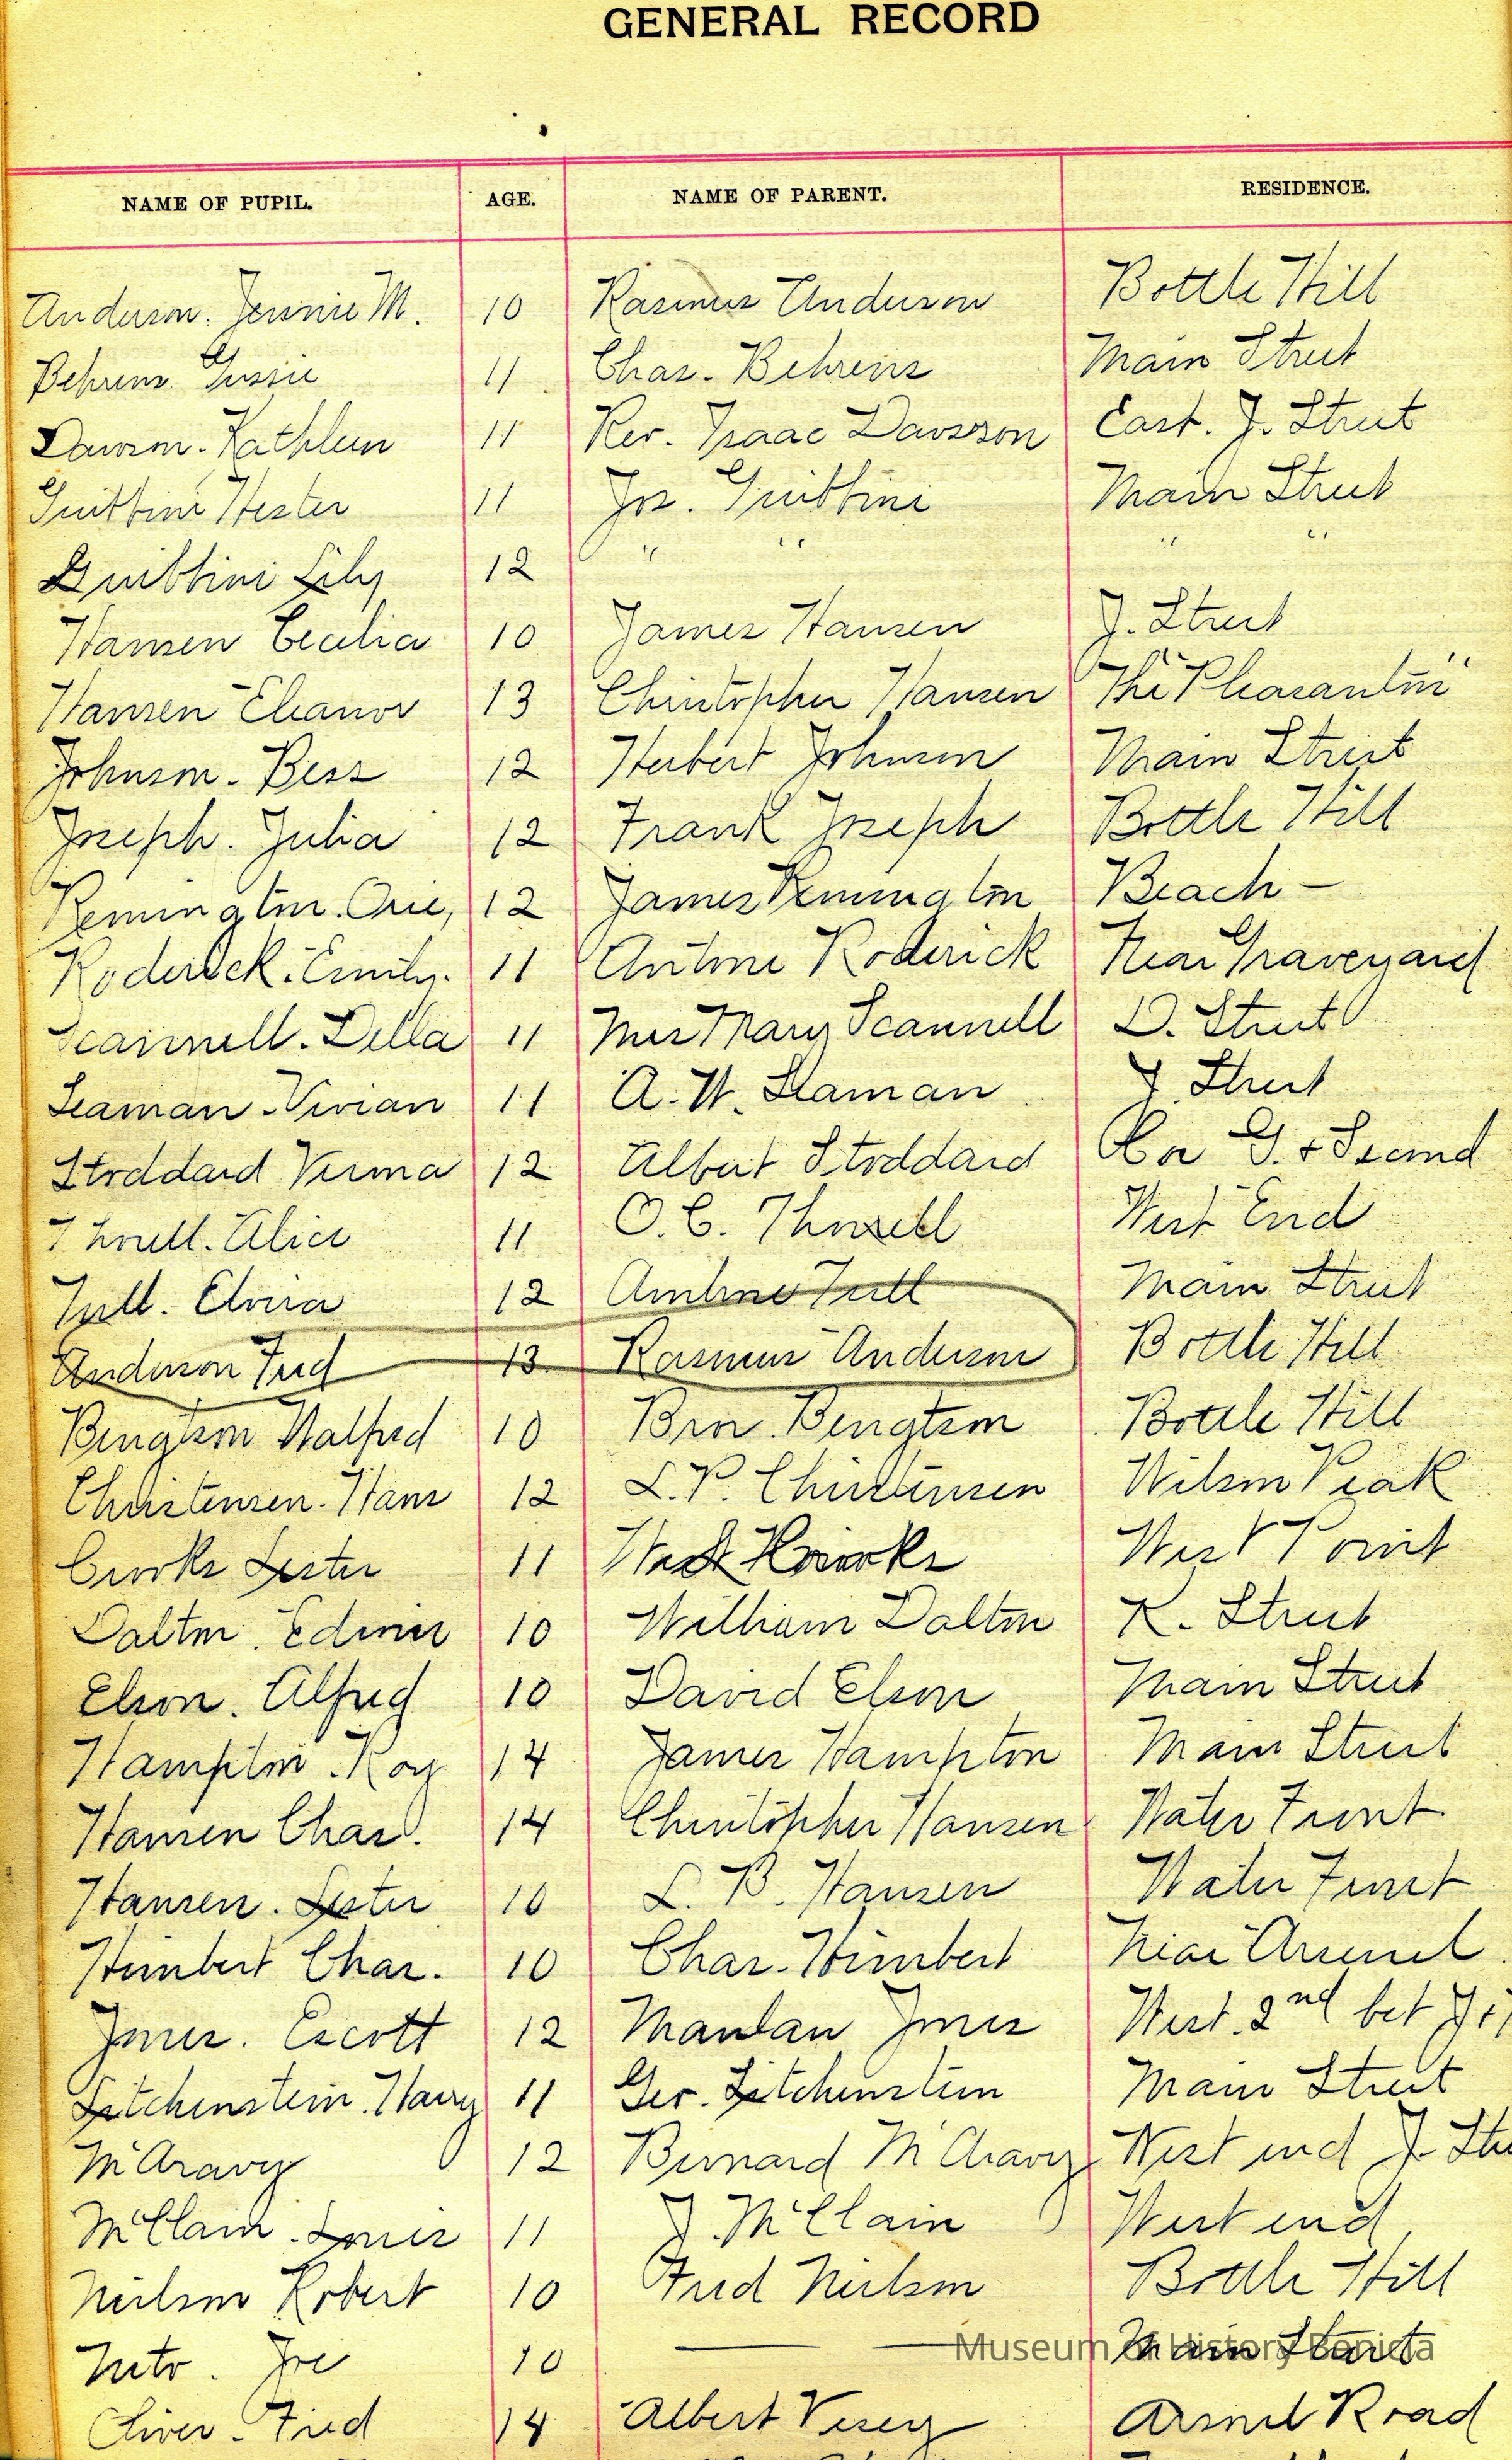 GENERAL RECORD
NAME OF PUPIL. AGE. NAME OF PARENT. RESIDENCE.
Anderson. Jennie M. 10 Rasmus Anderson Bottle Hill
Behrens Gussie 11 Chas. Behrens Main Street
Dawson. Kathleen 11 Rev. Isaac Dawson East. J. Street
Guibbini Hester 11 Jos. Guibbini Main Street
Guibbini Lily 12 " " " "
Hansen Cecilia 10 James Hansen J. Street
Hansen Eleanor 13 Christopher Hansen "The Pleasanton"
Johnson. Bess 12 Herbert Johnson Main Street
Joseph. Julia 12 Frank Joseph Bottle Hill
Remington. Orie, 12 James Remington Beach -
Roderick. Emily. 11 Antone Roderick Near Graveyard
Scannell. Della 11 Mrs Mary Scannell D. Street
Seaman - Vivian 11 A. W. Seaman J. Street
Stoddard Verma 12 Albert Stoddard Cor G. & Second
Thozell. Alice 11 O. C. Thozell West End
Tull. Elvira 12 Antone Tull Main Street
Anderson Fred 13 Rasmus Anderson Bottle Hill
Bengtson Walfred 10 Ben Bengtson Bottle Hill
Christensen. Hans 12 L. P. Christensen Wilson Peak
Crooks Lester 11 Crooks West Point
Dalton. Edmer 10 William Dalton K. Street
Elson. Alfred 10 David Elson Main Street
Hampton. Roy 14 James Hampton Main Street
Hansen Chas. 14 Christopher Hansen Water Front
Hansen. Lester 10 L. B. Hansen Water Front
Humbert Chas. 10 Chas. Humbert Near Arsenal
Jones. Escott 12 Manlan Jones West. 2nd bet
Litchenstein. Harry 11 Geo. Litchenstein Main Street
McAravy 12 Bernard McAravy West end J. Stre
McClain. Louis 11 J. McClain West end
Neilson Robert 10 Fred Neilson Bottle Hill
Neto. Joe 10 — — Main Street
Oliver. Fred 14 Albert Vesey Arsenal Road
Museum of History Benicia